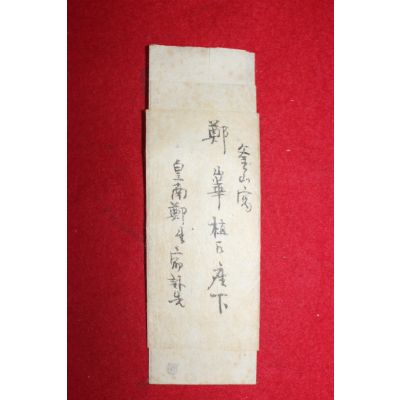 釜山宅
鄭 華植氏 座下
皇南鄭生宅訃告